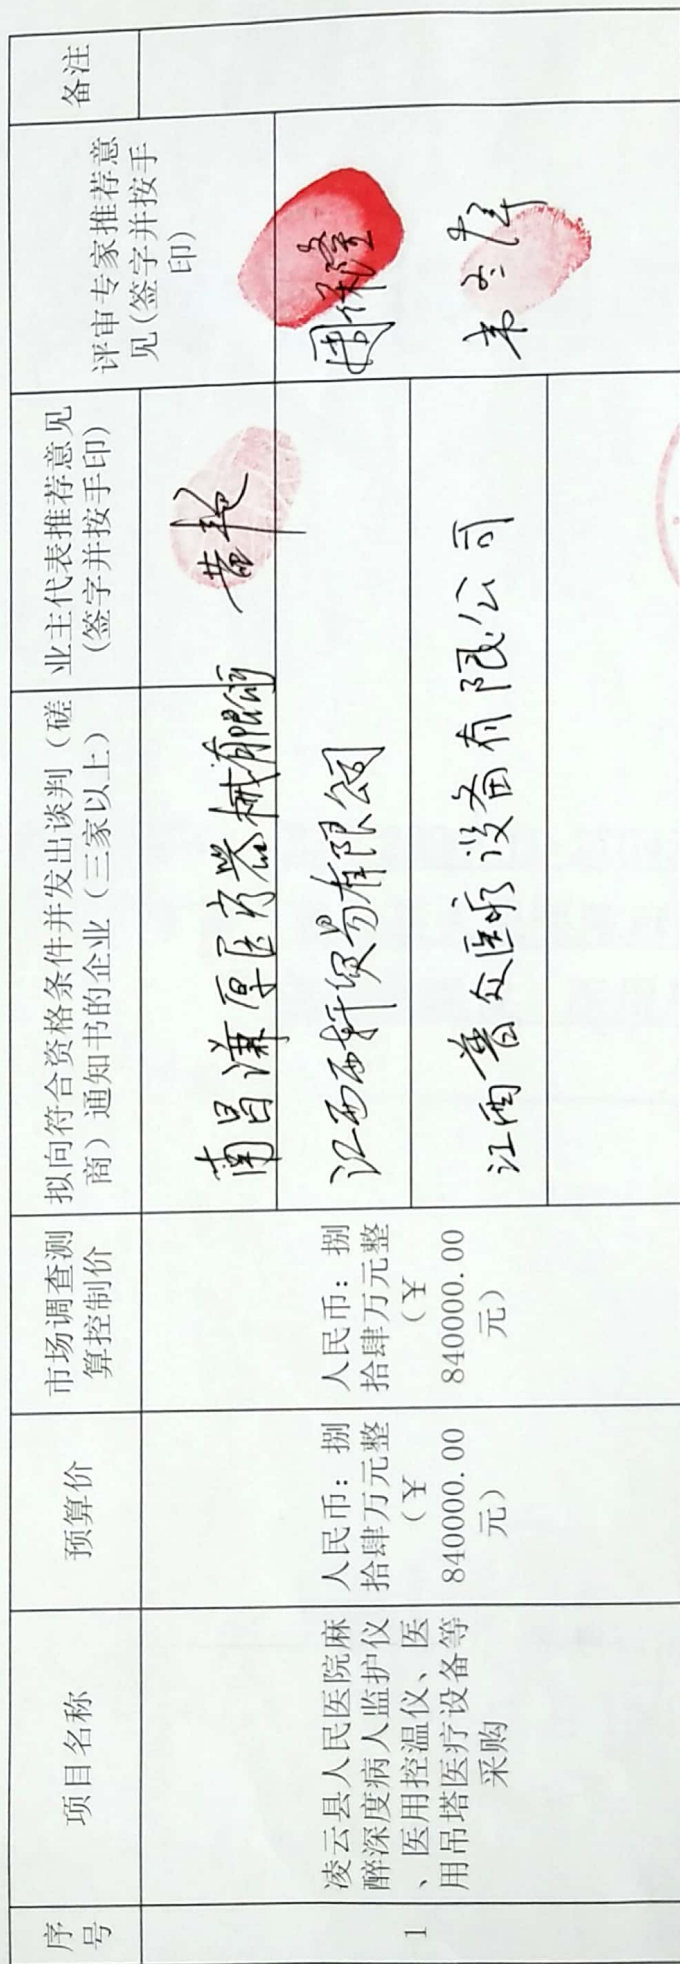 序
号
项目名称
预算价
市场调查测
算控制价
拟向符合资格条件并发出谈判（磋
商）通知书的企业（三家以上）
业主代表推荐意见
（签字并按手印）
评审专家推荐意
见（签字并按手
印）
备注
1
凌云县人民医院麻
醉深度病人监护仪
、医用控温仪、医
用吊塔医疗设备等
采购
人民币：捌
拾肆万元整
（¥
840000.00
元）
人民币：捌
拾肆万元整
（¥
840000.00
元）
南昌谦厚医疗器械有限公司
江西西轩贸易有限公司
江西普众医疗设备有限公司